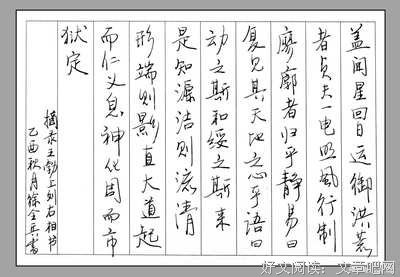 盖闻星回日运御洪荒
者贞夫一电照风行制
廖廓者归乎静易曰
复见其天地之心乎语曰
动之斯和绥之斯来
是知源洁则流清
形端则影直大道起
而仁义息神化周而市
狱定
摘录王勃上刘右相书
乙酉秋月徐全兵书
好文阅读：文章吧网